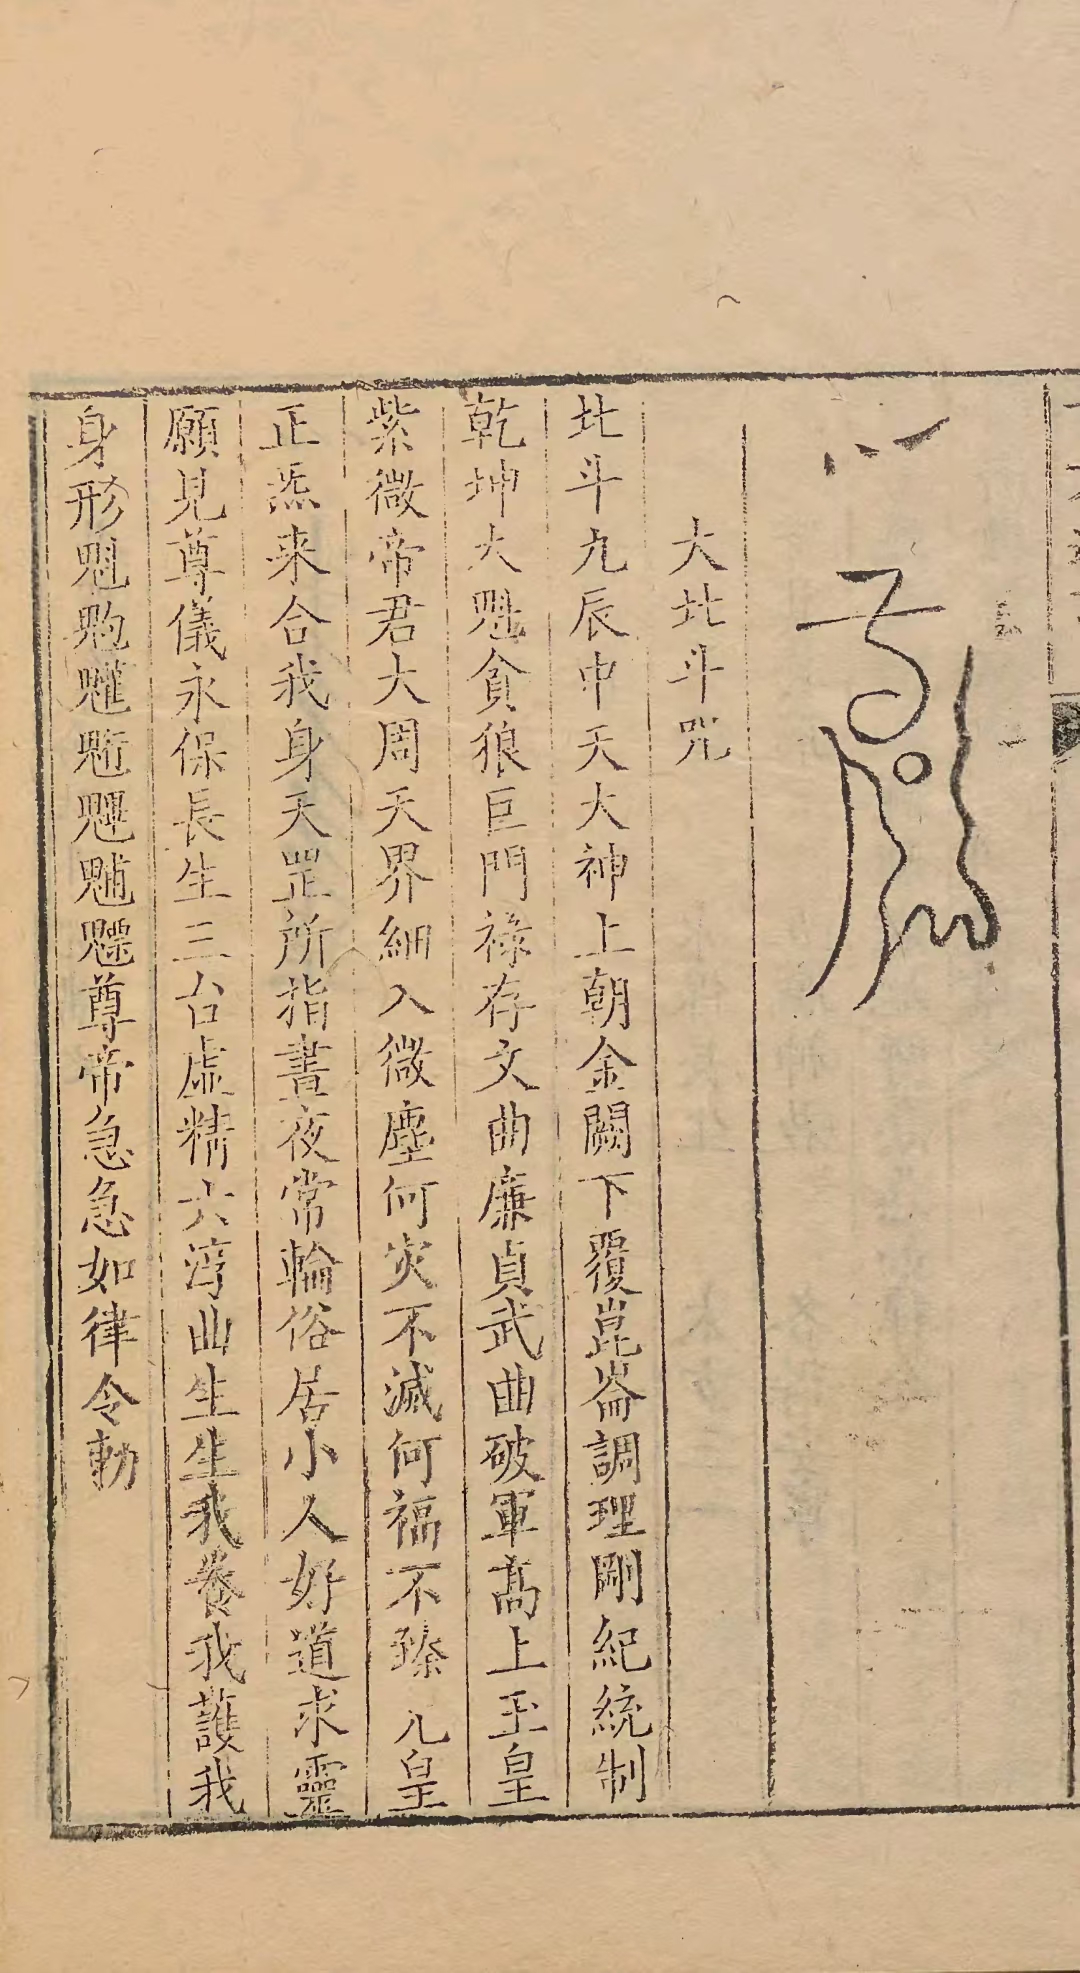 大北斗咒
北斗九辰中天大神上朝金闕下覆崑崙調理剛紀統制
乾坤大魁貪狼巨門祿存文曲廉貞武曲破軍髙上玉皇
紫微帝君大周天界細入微塵何災不滅何福不臻元皇
正炁来合我身天罡所指晝夜常輪俗居小人好道求靈
願見尊儀永保長生三台虛精六淳曲生生我養我護我
身形魁𩲃䰢魓䰨尊帝急急如律令勅